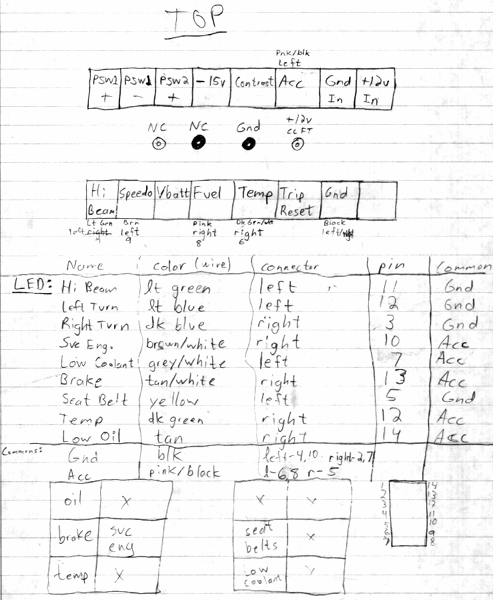 TOP
Pnk/blk
Left
PSW1 + PSW1 - PSW2 + -15v Contrast Acc Gnd In +12v In
NC NC Gnd +12v CCFT
Hi Beam Speedo Vbatt Fuel Temp Trip Reset Gnd
Lt Grn left Brn left 9 Pink right 8 Dk Grn/wht right 6 Black left
Name color (wire) connector pin Common
LED: Hi Beam lt green left 11 Gnd
Left Turn lt blue left 12 Gnd
Right Turn dk blue right 3 Gnd
Svc Eng. brown/white right 10 Acc
Low Coolant grey/white left 7 Acc
Brake tan/white right 13 Acc
Seat Belt yellow left 5 Gnd
Temp dk green right 12 Acc
Low Oil tan right 14 Acc
Commons: Gnd blk left-4,10 right-2,7
Acc pink/black l-6,8 r-5
oil X X X 1 14
2 13
3 12
4 11
brake svc eng seat belts 5 10
6 9
7 8
temp X Low Coolant X